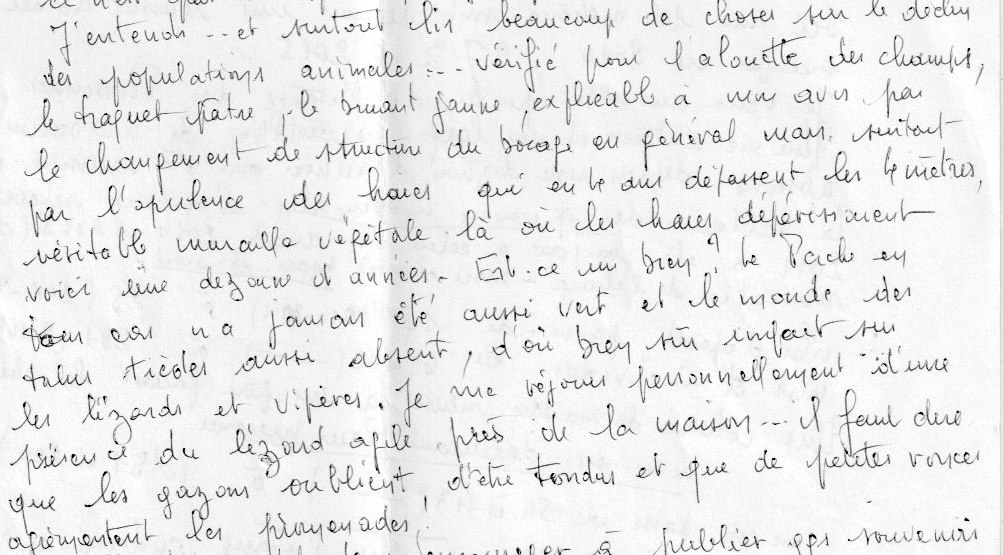 ce n'est pas
J'entends... et surtout lis beaucoup de choses sur le déclin
des populations animales... vérifié pour l'alouette des champs,
le traquet pâtre, le bruant jaune, explicable à mon avis par
le changement de structure du bocage en général mais surtout
par l'opulence des haies qui en 10 ans dépassent les 10 mètres,
véritable muraille végétale là où les haies dépérissaient
voici une dizaine d'années. Est-ce un bien ? Le Perche en
tous cas n'a jamais été aussi vert et le monde des
talus tièdes aussi absent, d'où bien sûr impact sur
les lézards et vipères. Je me réjouis personnellement d'une
présence du lézard agile près de la maison... il faut dire
que les gazons oublient d'être tondus et que de petites ronces
agrémentent les promenades.
à publier ses souvenirs